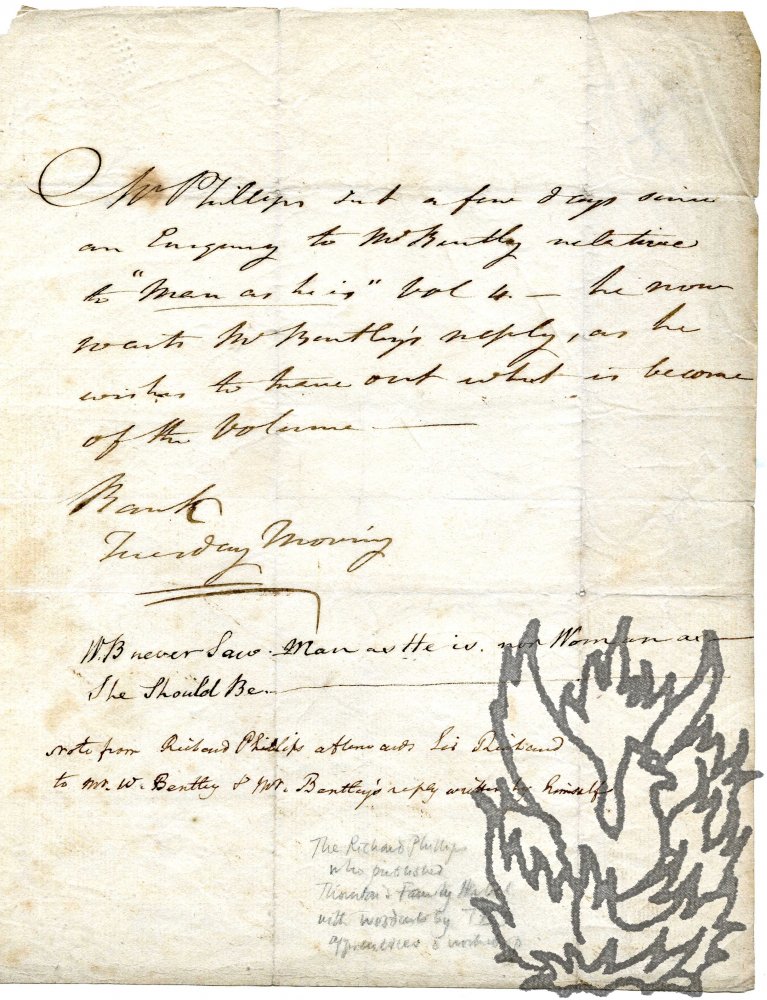 Mr Phillips sent a few days since
an Enquiry to Mr Bentley relative
to "Man as he is" Vol 4. — he now
waits Mr Bentley's reply, as he
wishes to trace out what is become
of the Volume —
Bank
Tuesday Morning
W.B never Saw Man as He is. nor Woman as
She Should Be.
Note from Richard Phillips afterwards Sir Richard
to Mr. W. Bentley & Mr. Bentley's reply written by himself
The Richard Phillips
who published
Thornton's Family Herbal
with woodcuts by
apprentices &